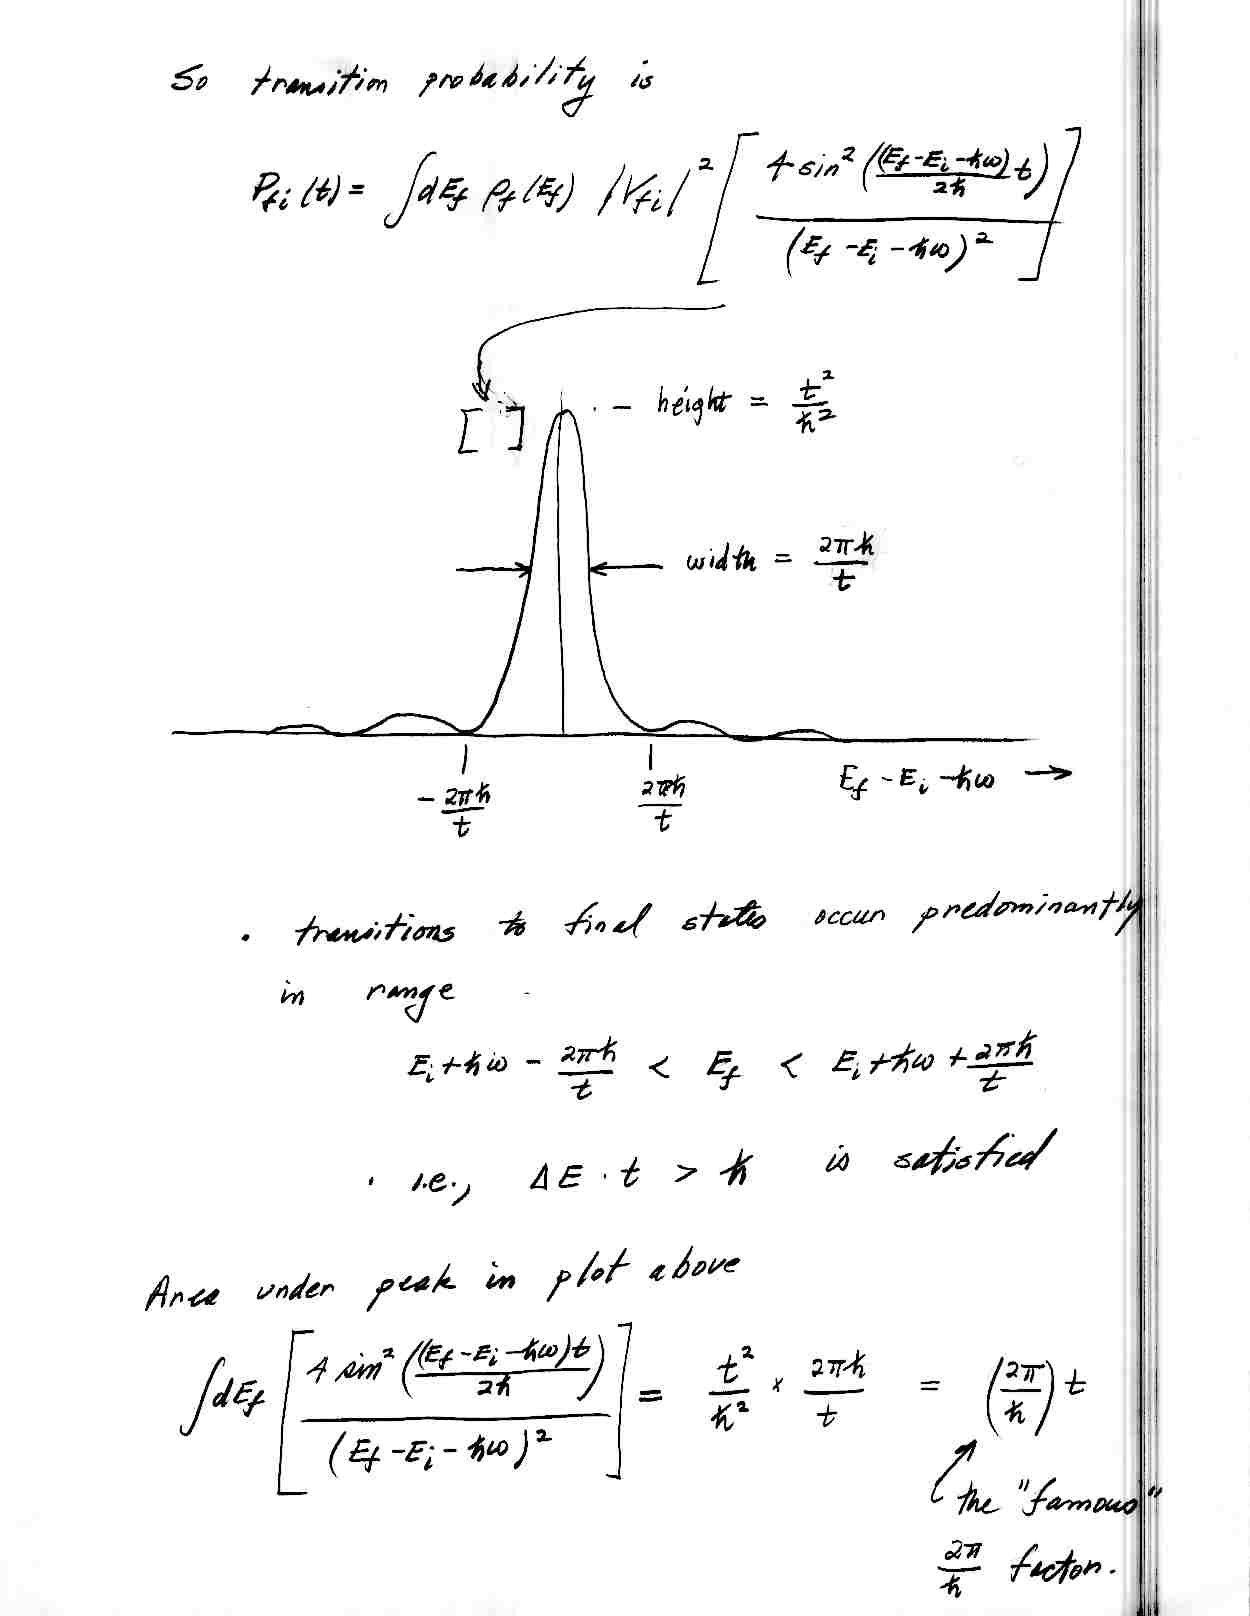 So transition probability is
P_fi (t) = ∫dE_f ρ_f(E_f) |V_fi|² [ 4 sin² ((E_f - E_i - ħω)t / 2ħ) / (E_f - E_i - ħω)² ]
[ ] - height = t²/ħ²
width = 2πħ/t
E_f - E_i - ħω →
- 2πħ/t 2πħ/t
· transitions to final states occur predominantly
in range
E_i + ħω - 2πħ/t < E_f < E_i + ħω + 2πħ/t
· i.e., ΔE · t > ħ is satisfied
Area under peak in plot above
∫dE_f [ 4 sin² ((E_f - E_i - ħω)t / 2ħ) / (E_f - E_i - ħω)² ] = t²/ħ² × 2πħ/t = (2π/ħ) t
the "famous"
2π/ħ factor.